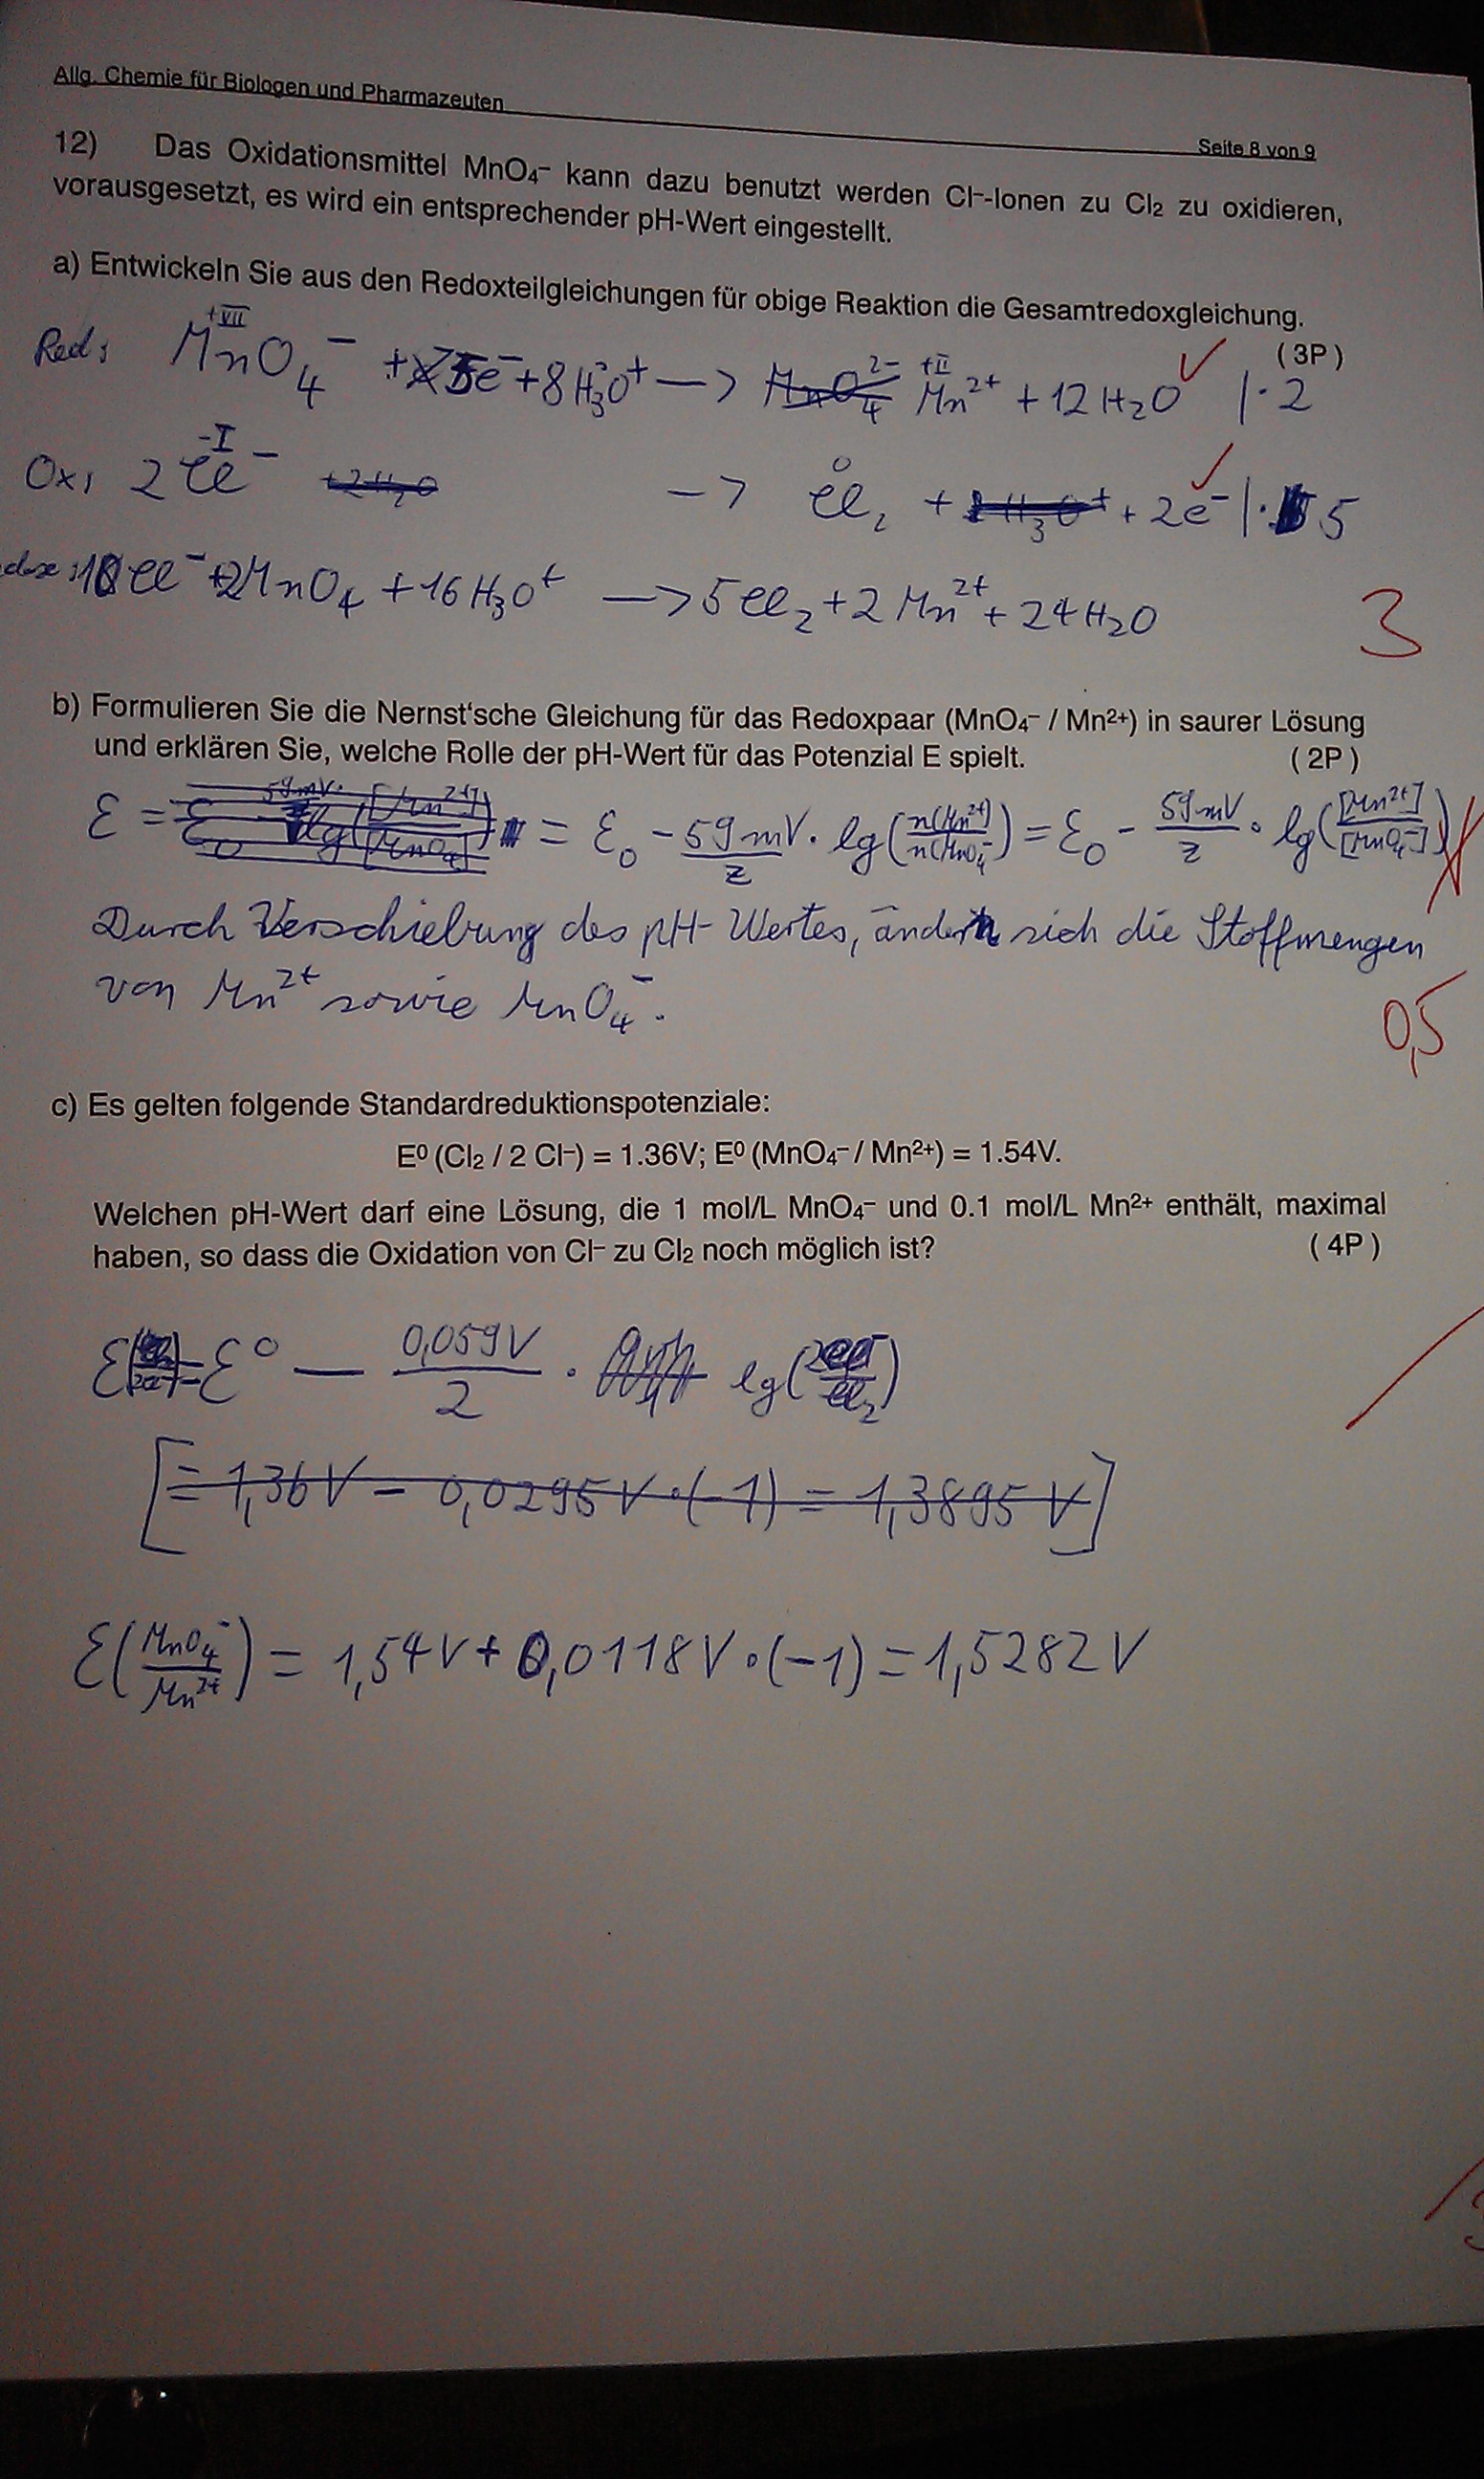 Allg. Chemie für Biologen und Pharmazeuten
Seite 8 von 9
12) Das Oxidationsmittel MnO₄⁻ kann dazu benutzt werden Cl⁻-Ionen zu Cl₂ zu oxidieren,
vorausgesetzt, es wird ein entsprechender pH-Wert eingestellt.
a) Entwickeln Sie aus den Redoxteilgleichungen für obige Reaktion die Gesamtredoxgleichung.
(3P)
+VII +II
Red: MnO₄⁻ + 5e⁻ + 8H₃O⁺ —> Mn²⁺ + 12H₂O |·2
-I 0
Ox: 2Cl⁻ —> Cl₂ + 2e⁻ |·5
10Cl⁻ + 2MnO₄ + 16H₃O⁺ —> 5Cl₂ + 2Mn²⁺ + 24H₂O
3
b) Formulieren Sie die Nernst'sche Gleichung für das Redoxpaar (MnO₄⁻ / Mn²⁺) in saurer Lösung
und erklären Sie, welche Rolle der pH-Wert für das Potenzial E spielt.
(2P)
ε = = ε₀ - 59mV/z · lg(n(Mn²⁺)/n(MnO₄⁻)) = ε₀ - 59mV/z · lg([Mn²⁺]/[MnO₄⁻])
Durch Verschiebung des pH-Wertes, ändern sich die Stoffmengen
von Mn²⁺ sowie MnO₄⁻.
0,5
c) Es gelten folgende Standardreduktionspotenziale:
E⁰ (Cl₂ / 2 Cl⁻) = 1.36V; E⁰ (MnO₄⁻ / Mn²⁺) = 1.54V.
Welchen pH-Wert darf eine Lösung, die 1 mol/L MnO₄⁻ und 0.1 mol/L Mn²⁺ enthält, maximal
haben, so dass die Oxidation von Cl⁻ zu Cl₂ noch möglich ist?
(4P)
ε = ε⁰ — 0,059V/2 · lg( /Cl₂)
[= 1,36V - 0,0295V·(-1) = 1,3895V]
ε(MnO₄⁻/Mn²⁺) = 1,54V + 0,0118V·(-1) = 1,5282V